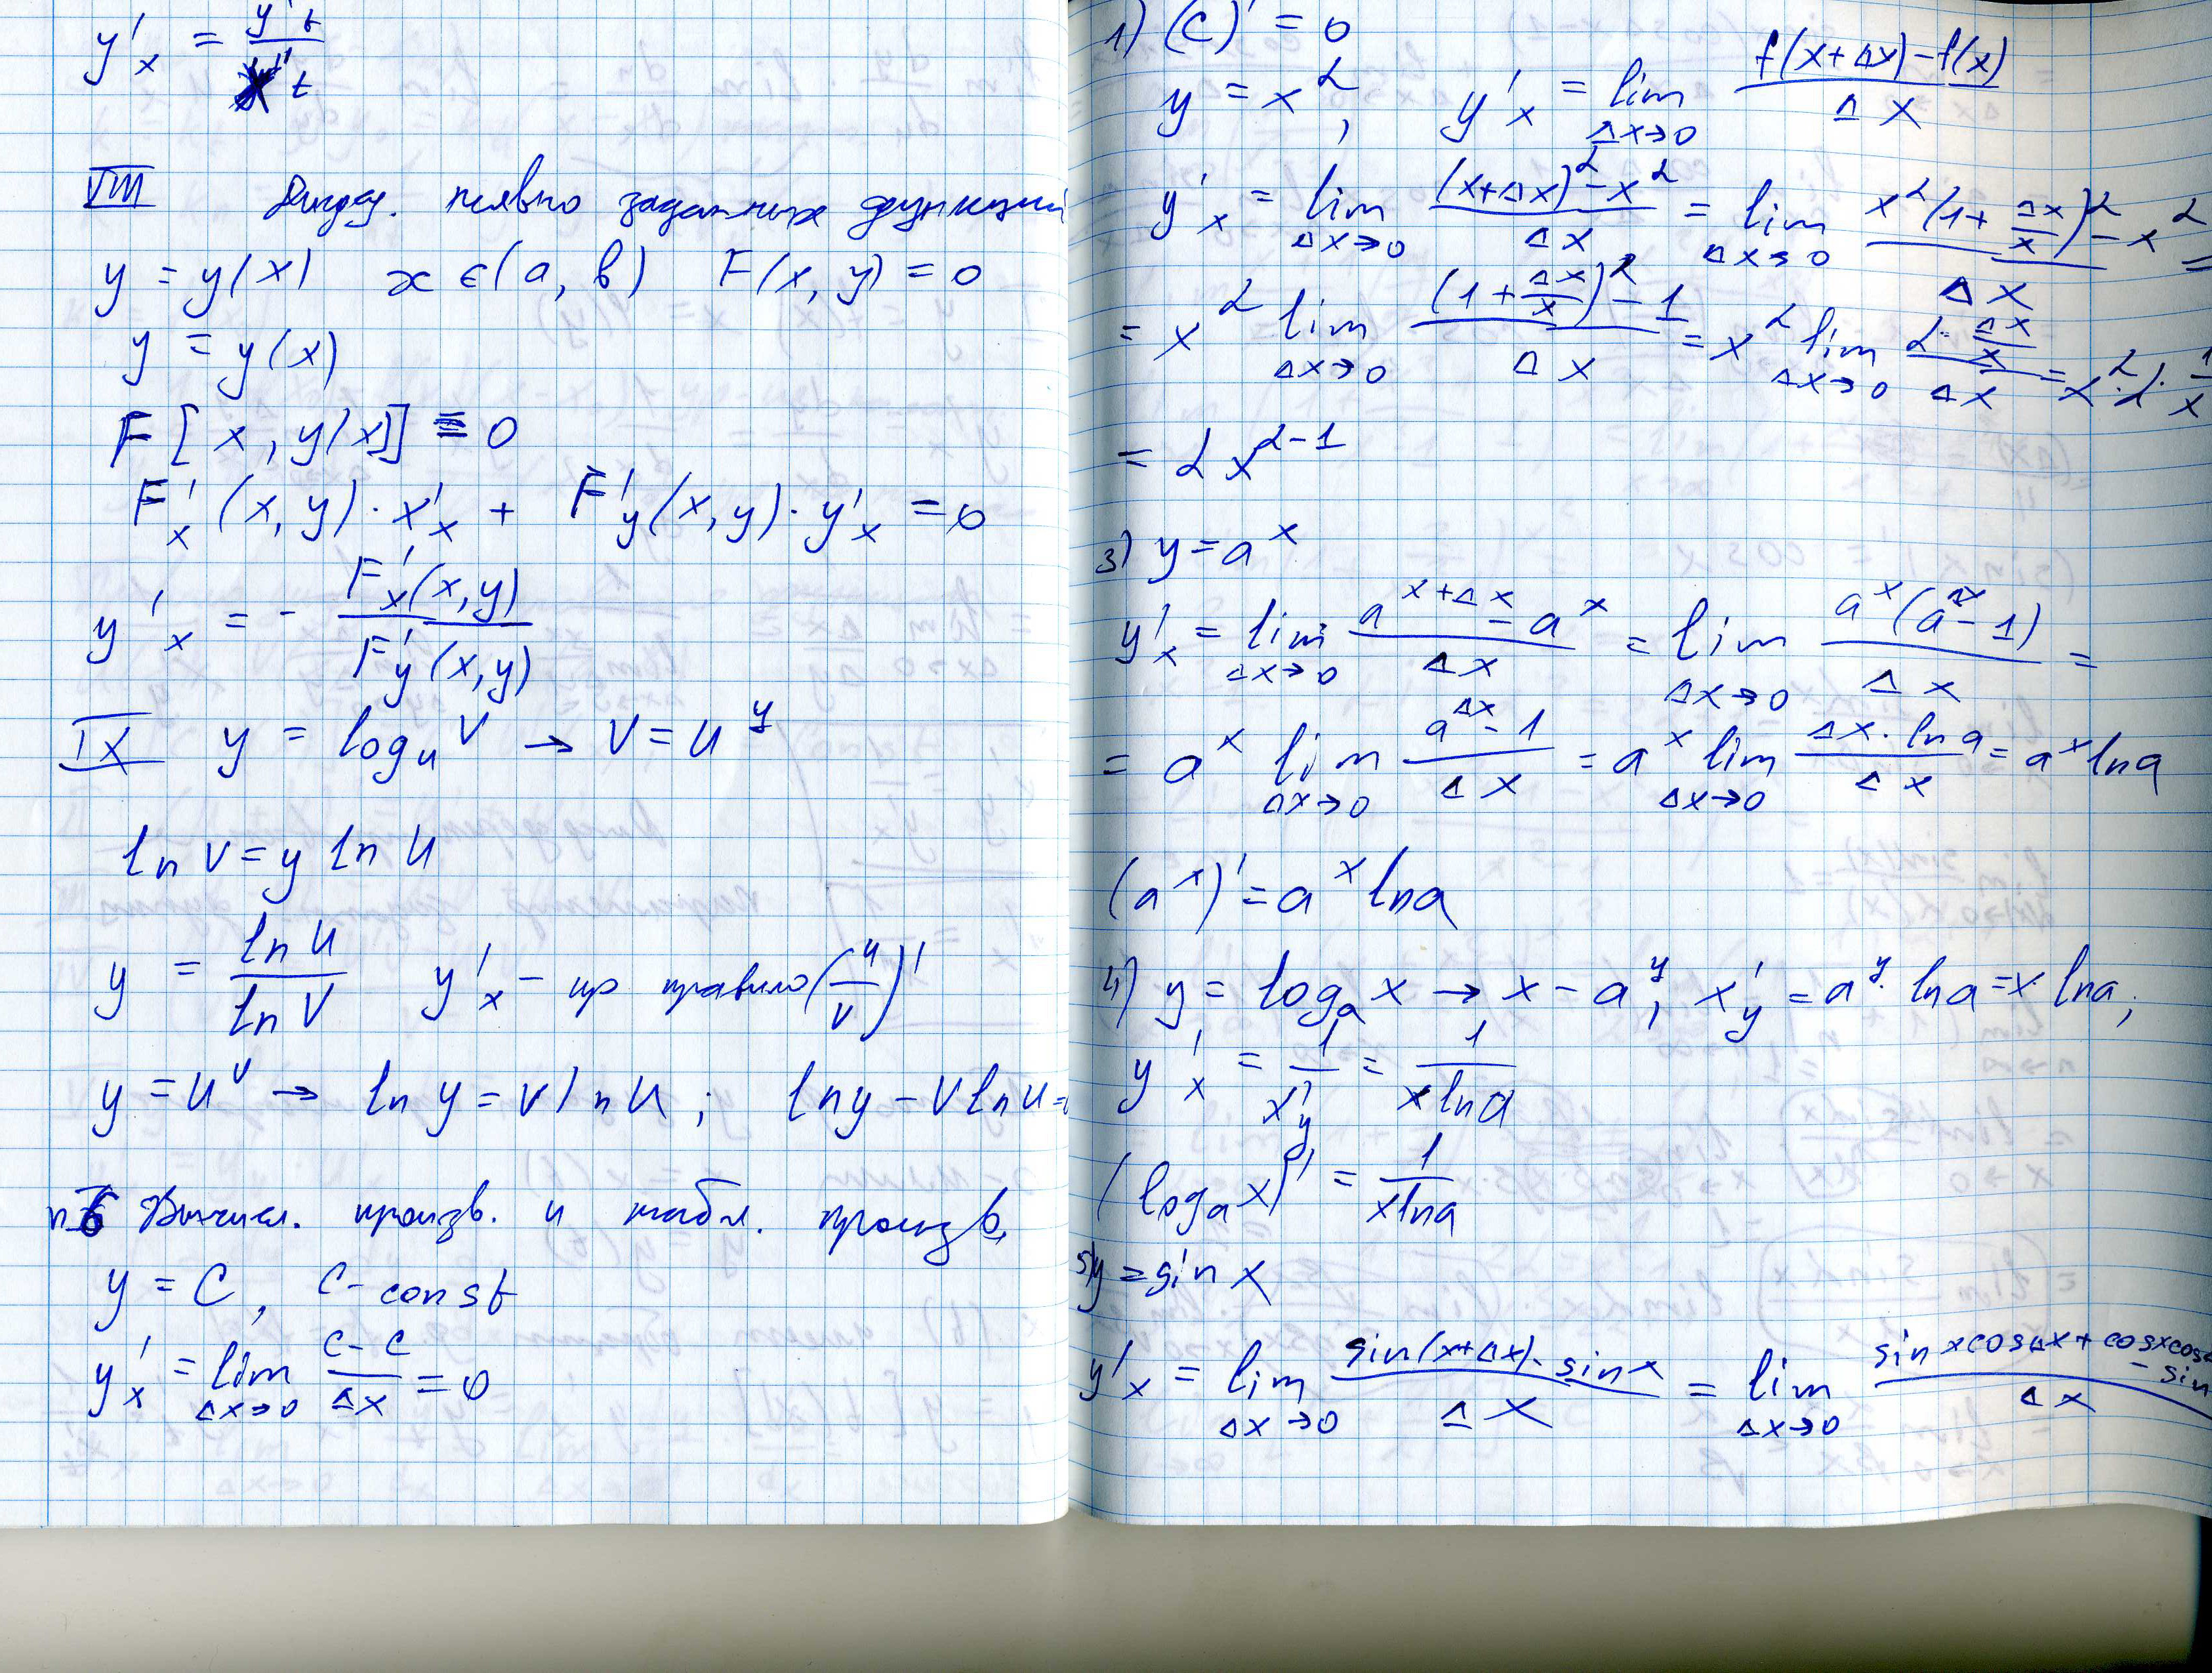 y'ₓ = y't / x't
VIII Дифф. неявно заданных функций
y = y(x) x ∈ (a, b) F(x, y) = 0
y = y(x)
F[x, y(x)] ≡ 0
F'ₓ(x, y) · x'ₓ + F'y(x, y) · y'ₓ = 0
y'ₓ = - F'ₓ(x, y) / F'y(x, y)
IX y = log_u V → V = u^y
ln V = y ln u
y = ln u / ln V y'ₓ – пр правило (u/v)'
y = u^v → ln y = v ln u ; ln y – v ln u =
п6 Вычисл. произв. и табл. произв.
y = C, C – const
y'ₓ = lim_{Δx→0} (C – C) / Δx = 0
1) (C)' = 0
y = x^α, y'ₓ = lim_{Δx→0} (f(x+Δx) – f(x)) / Δx
y'ₓ = lim_{Δx→0} ((x+Δx)^α – x^α) / Δx = lim_{Δx→0} (x^α(1 + Δx/x)^α – x^α) / Δx =
= x^α lim_{Δx→0} ((1 + Δx/x)^α – 1) / Δx = x^α lim_{Δx→0} (α · Δx/x) / Δx = x^α · α · 1/x
= α x^{α-1}
3) y = a^x
y'ₓ = lim_{Δx→0} (a^{x+Δx} – a^x) / Δx = lim_{Δx→0} a^x(a^{Δx} – 1) / Δx =
= a^x lim_{Δx→0} (a^{Δx} – 1) / Δx = a^x lim_{Δx→0} (Δx · ln a) / Δx = a^x ln a
(a^x)' = a^x ln a
4) y = log_a x → x – a^y, x'y = a^y · ln a = x · ln a;
y'ₓ = 1 / x'y = 1 / (x ln a)
(log_a x)' = 1 / (x ln a)
5) y = sin x
y'ₓ = lim_{Δx→0} (sin(x+Δx) – sin x) / Δx = lim_{Δx→0} (sin x cos Δx + cos x cos – sin) / Δx